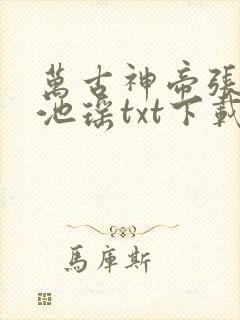 萬古神帝張
池瑤txt下載
馬庫斯